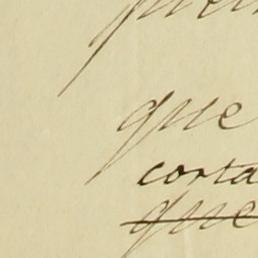 que
corta
que